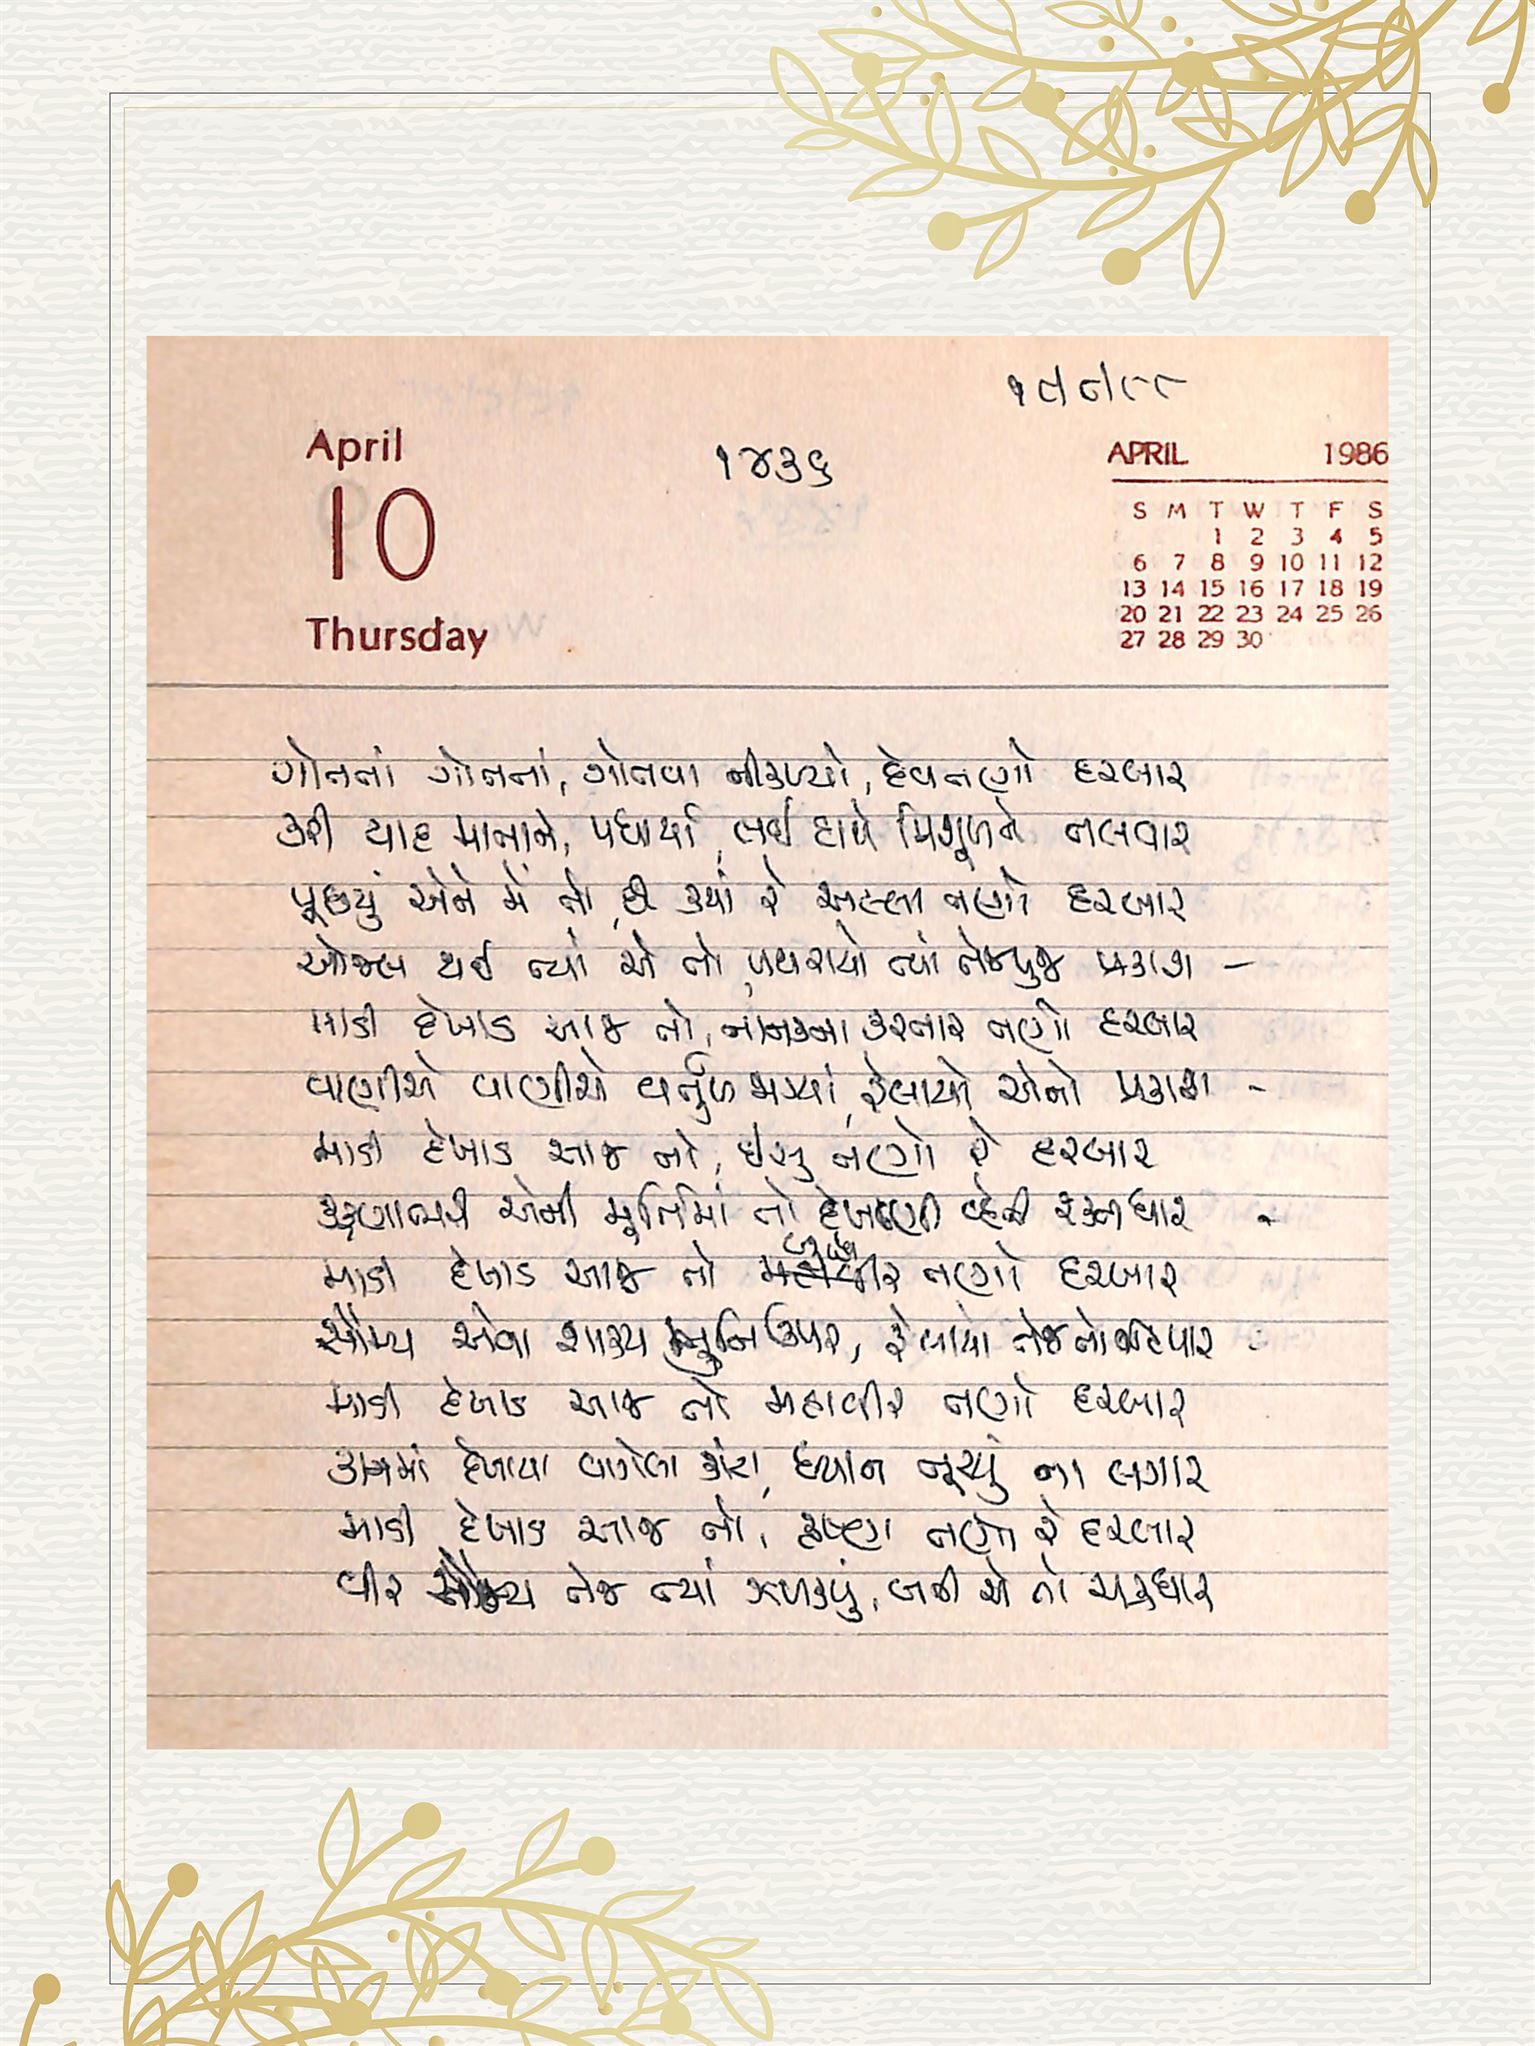 ૧૯/૮/૮૮
April
10
Thursday
૧૪૩૬
APRIL 1986
S M T W T F S
1 2 3 4 5
6 7 8 9 10 11 12
13 14 15 16 17 18 19
20 21 22 23 24 25 26
27 28 29 30
ગોતતાં ગોતતાં, ગોતવા નીકળ્યો, દેવતણો દરબાર
કરી યાદ માતાને, પધાર્યા, લઈ હાથે ત્રિશૂળને તલવાર
પૂછયું એને મેં તો, છે ક્યાં રે અલ્લા તણો દરબાર
ઓજલ થઈ ત્યાં એ તો, પથરાયો ત્યાં તેજપુંજ પ્રકાશ -
માડી દેખાડ આજ તો, નાનકના કરનાર તણો દરબાર
વાણીએ વાણીએ વર્તુળ ભર્યાં, ફેલાયો એનો પ્રકાશ -
માડી દેખાડ આજ તો, ઈસુ તણો રે દરબાર
કરૂણાભરી એની મૂર્તિમાં તો દેખાણી વ્હેતી રક્તધાર -
માડી દેખાડ આજ તો બુદ્ધ તણો દરબાર
સૌમ્ય એવા શાક્ય મુનિ ઉપર, ફેલાયો તેજનો
માડી દેખાડ આજ તો મહાવીર તણો દરબાર
કાનમાં દેખાયા વાગેલા કાંટા, ધ્યાન ચૂક્યું ના લગાર
માડી દેખાડ આજ તો, કૃષ્ણ તણો રે દરબાર
વીર તેજ ત્યાં ઝળક્યું, બની એ તો ચક્રધાર